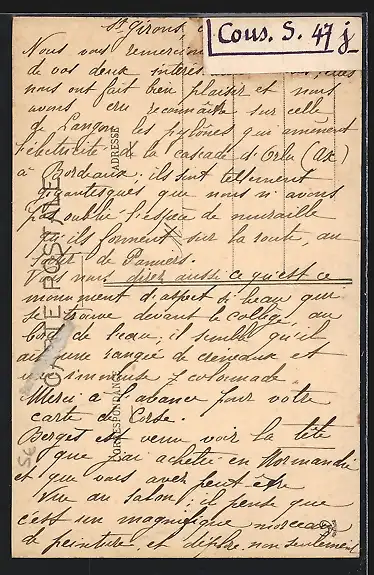 St Girons,
Cous. S. 47 j
Nous vous remercions
de vos deux
nous ont fait bien plaisir et nous
avons cru reconnaître sur celle
de Langon les pylônes qui amènent
l'électricité de la cascade d'Orlu (Ax)
à Bordeaux; ils sont tellement
gigantesques que nous n'avons
pas oublié l'espèce de muraille
qu'ils forment sur la route, au
de Pamiers.
Vous nous direz aussi ce qu'est ce
monument d'aspect si beau qui
se trouve devant le collège, au
bord de l'eau; il semble qu'il
ait une rangée de créneaux et
une immense colonnade.
Merci à l'avance pour votre
carte de Corse.
Berges est venu voir la tête
que j'ai acheté en Normandie
et que vous avez peut être
vue au salon; il pense que
c'est un magnifique morceau
de peinture, et déplore non seulement
CARTE POSTALE
CORRESPONDANCE
ADRESSE